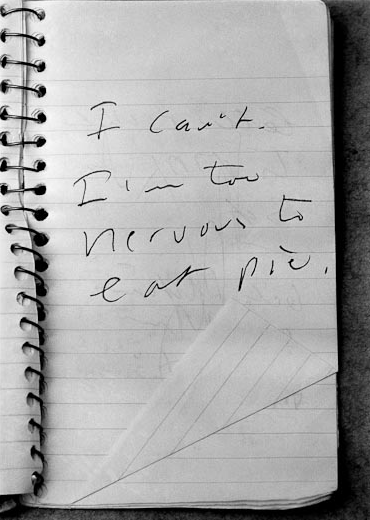 I can't.
I'm too
nervous to
eat pie.